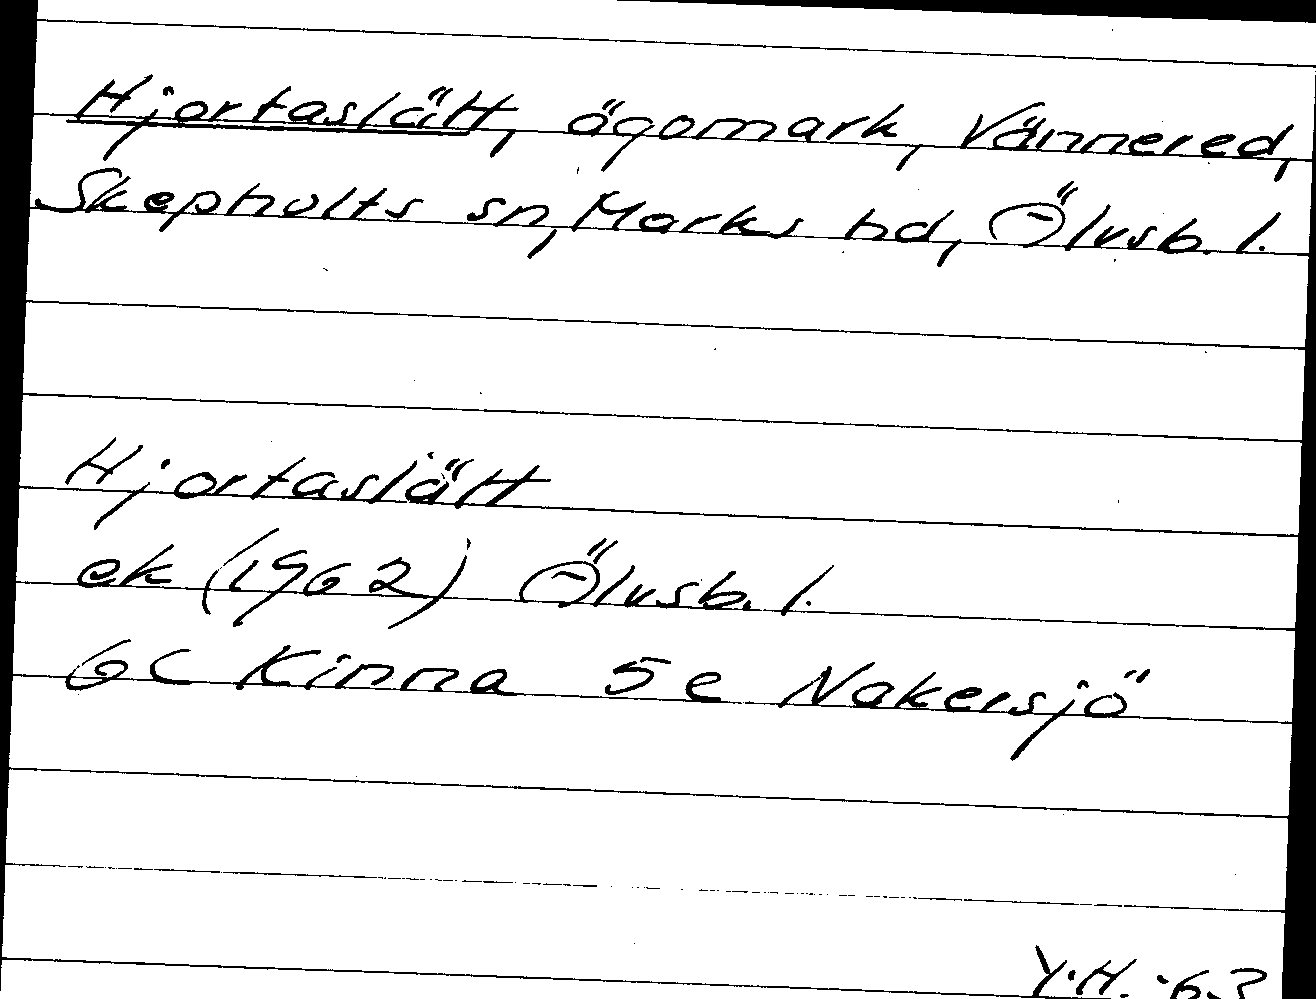 Hjortaslätt, ägomark, Vännered,
Skephults sn, Marks hd, Älvsb. l.
Hjortaslätt
ek (1962) Älvsb. l.
6C Kinna 5e Nakersjö
Y.H. -63